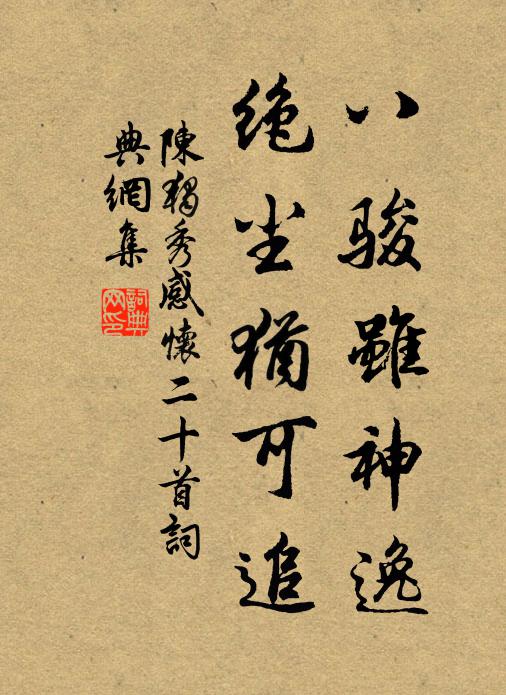 八骏雖神逸
绝尘猶可追
陳獨秀感懷二十首詞
典網集
詞典
网印